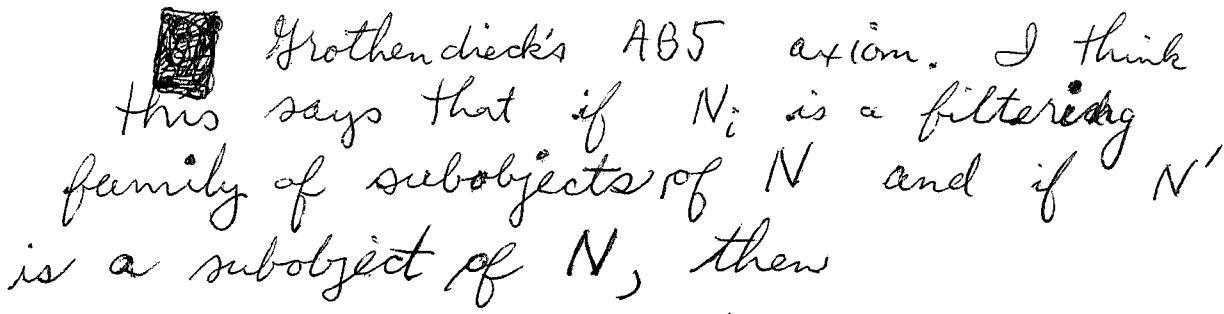 Grothendieck's AB5 axiom. I think
this says that if Nᵢ is a filtering
family of subobjects of N and if N'
is a subobject of N, then